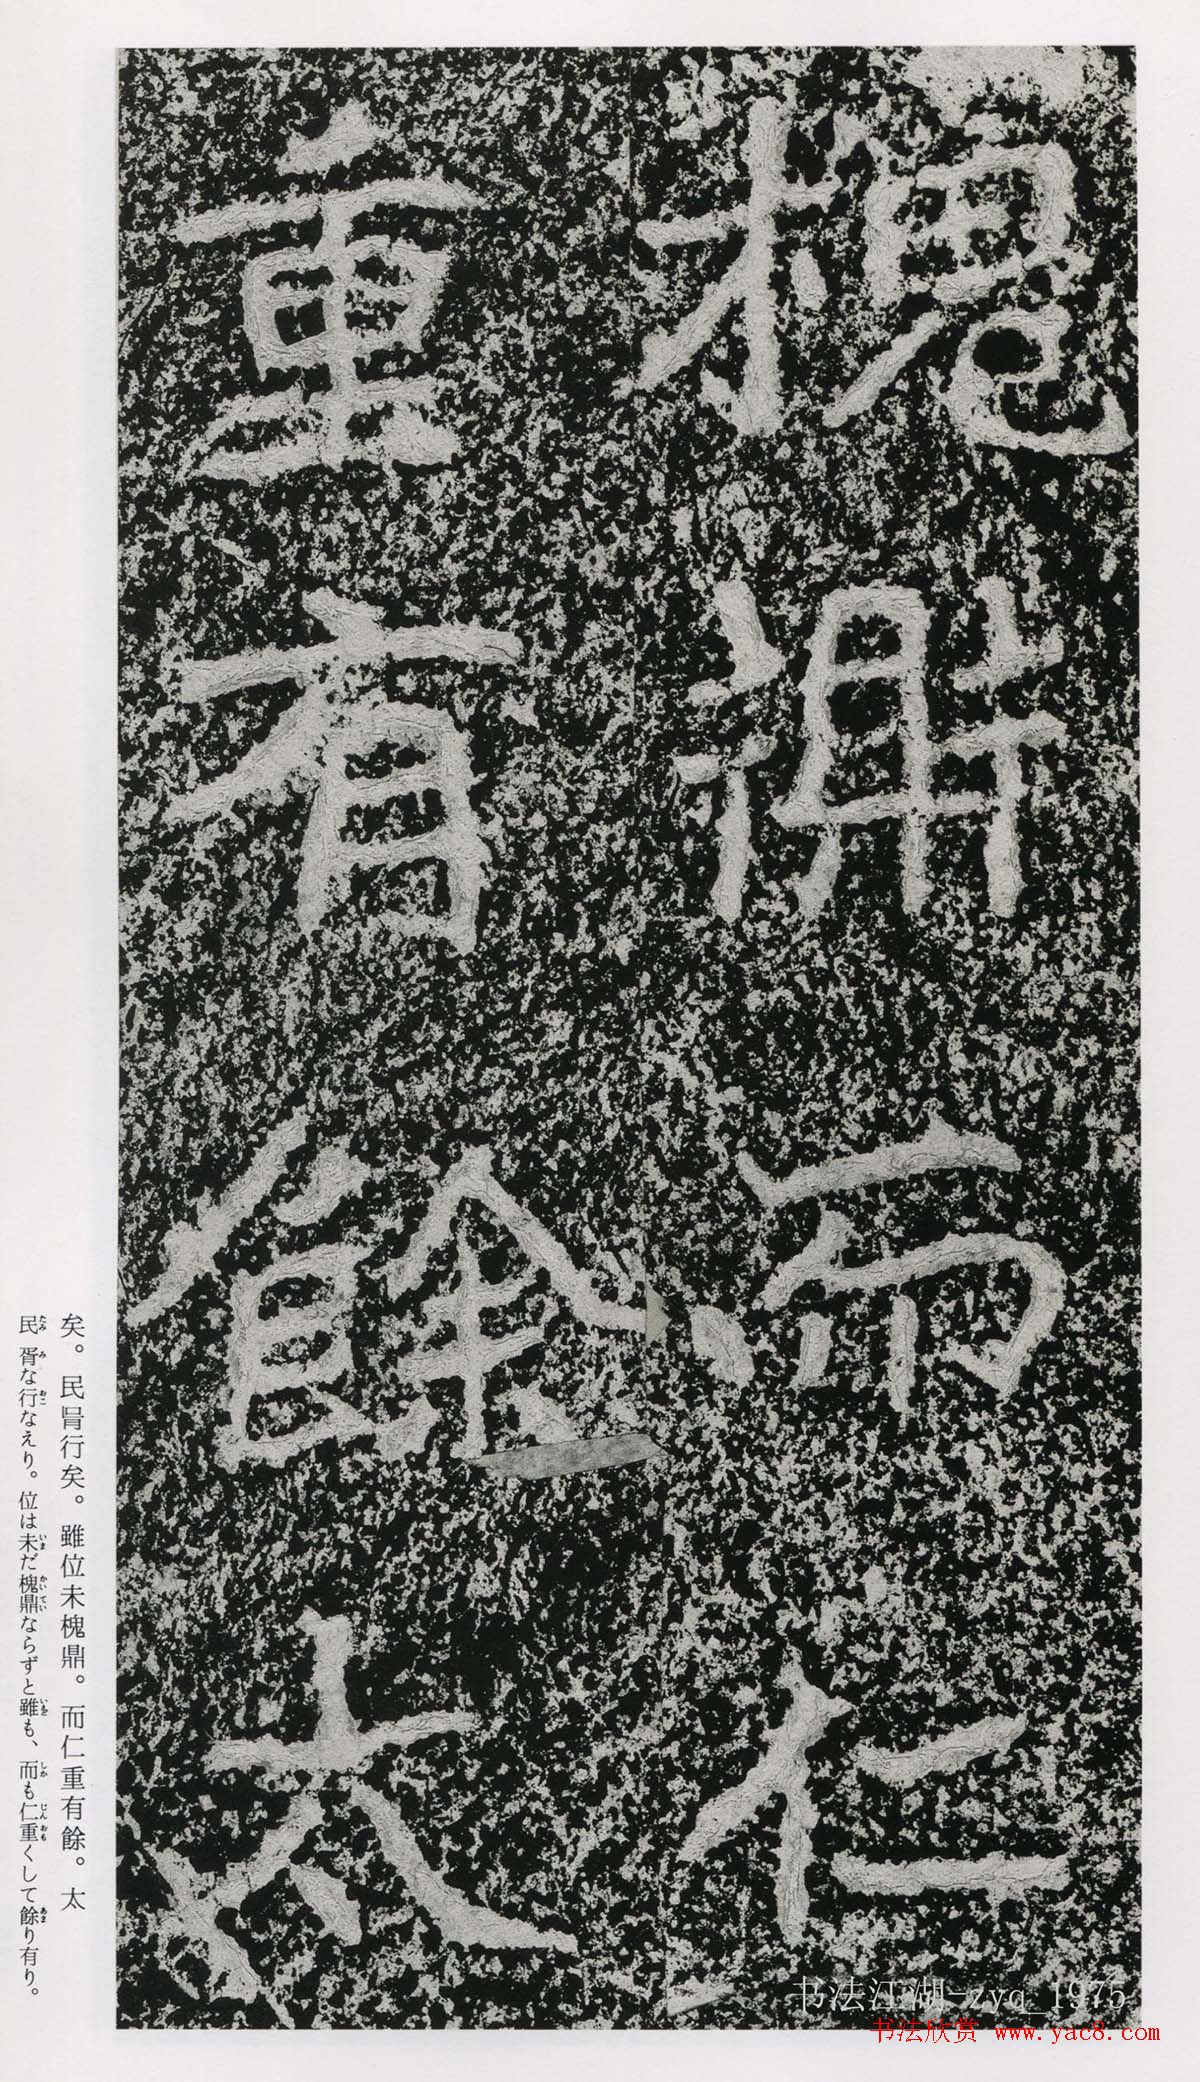 槐鼎而仁
重有餘太
矣。民胥行矣。雖位未槐鼎。而仁重有餘。太
民胥な行なえり。位は未だ槐鼎ならずと雖も、而も仁重くして餘り有り。
书法江湖-zyq_1975
书法欣赏 www.yac8.com